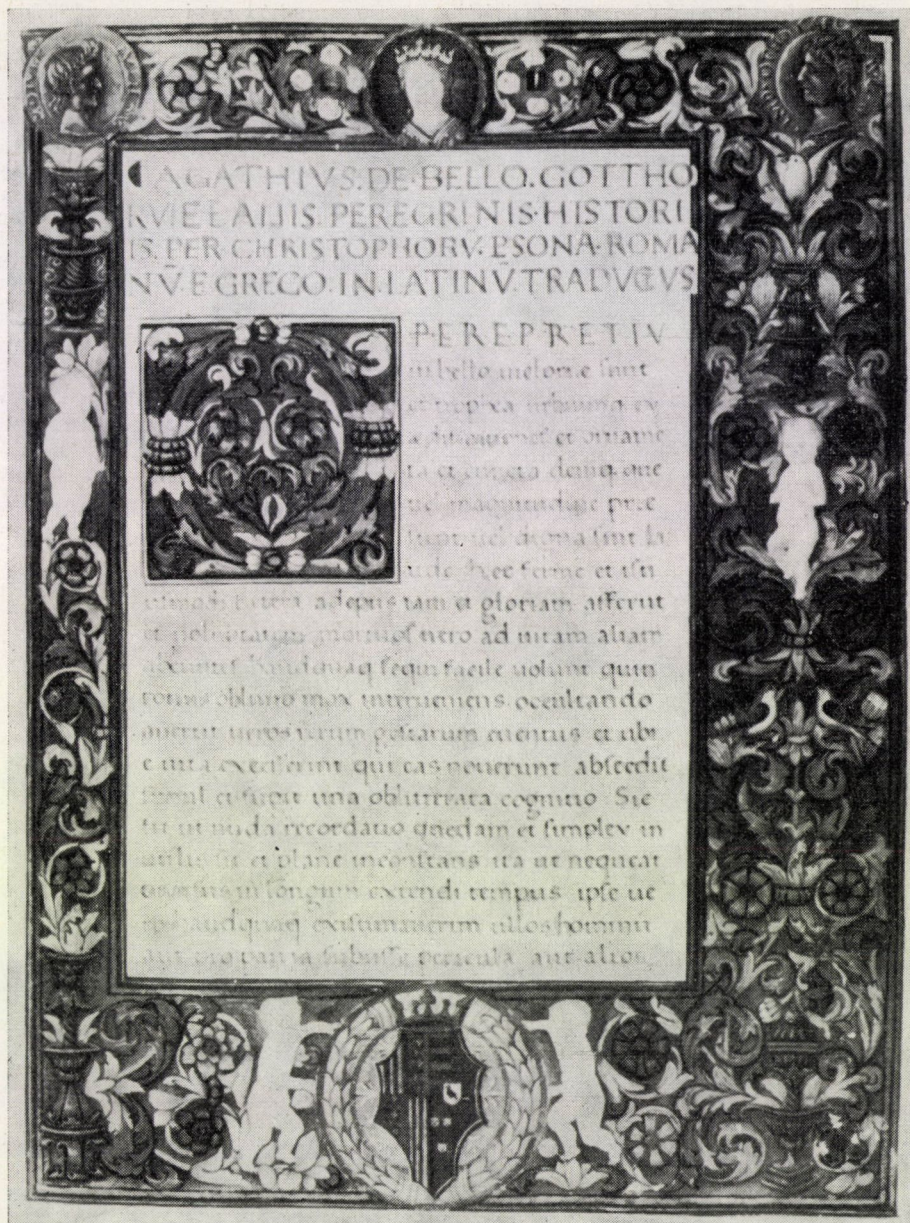 AGATHIVS. DE. BELLO. GOTTHO
RVM ET ALIIS. PEREGRINIS. HISTORI
IS. PER CHRISTOPHORV. PSONA. ROMA
NV̄. E GRECO. IN. LATINV̄. TRADVCTVS
PEREPRETIV
in bello uictoriæ sunt
et trophæa urbium
et orname
ta et cuncta deniq que
uel magnitudine præ
uel digna sint la
ude hæc ferme et isti
adeptis tam et gloriam afferūt
uero ad uitam aliam
haudquaq sequi facile uolunt quin
obliuio mox interueniens occultando
auertit ueros rerum gestarum euentus et ubi
e uita excesserint qui eas nouerunt abscedit
simul et fugit una obliterata cognitio Sic
fit ut nuda recordatio quedam et simplex in
utilis sit et plane inconstans ita ut nequeat
in longum extendi tempus ipse ue
haudquaq existimauerim illos hominū
aut pro patria subiisse pericula aut alios